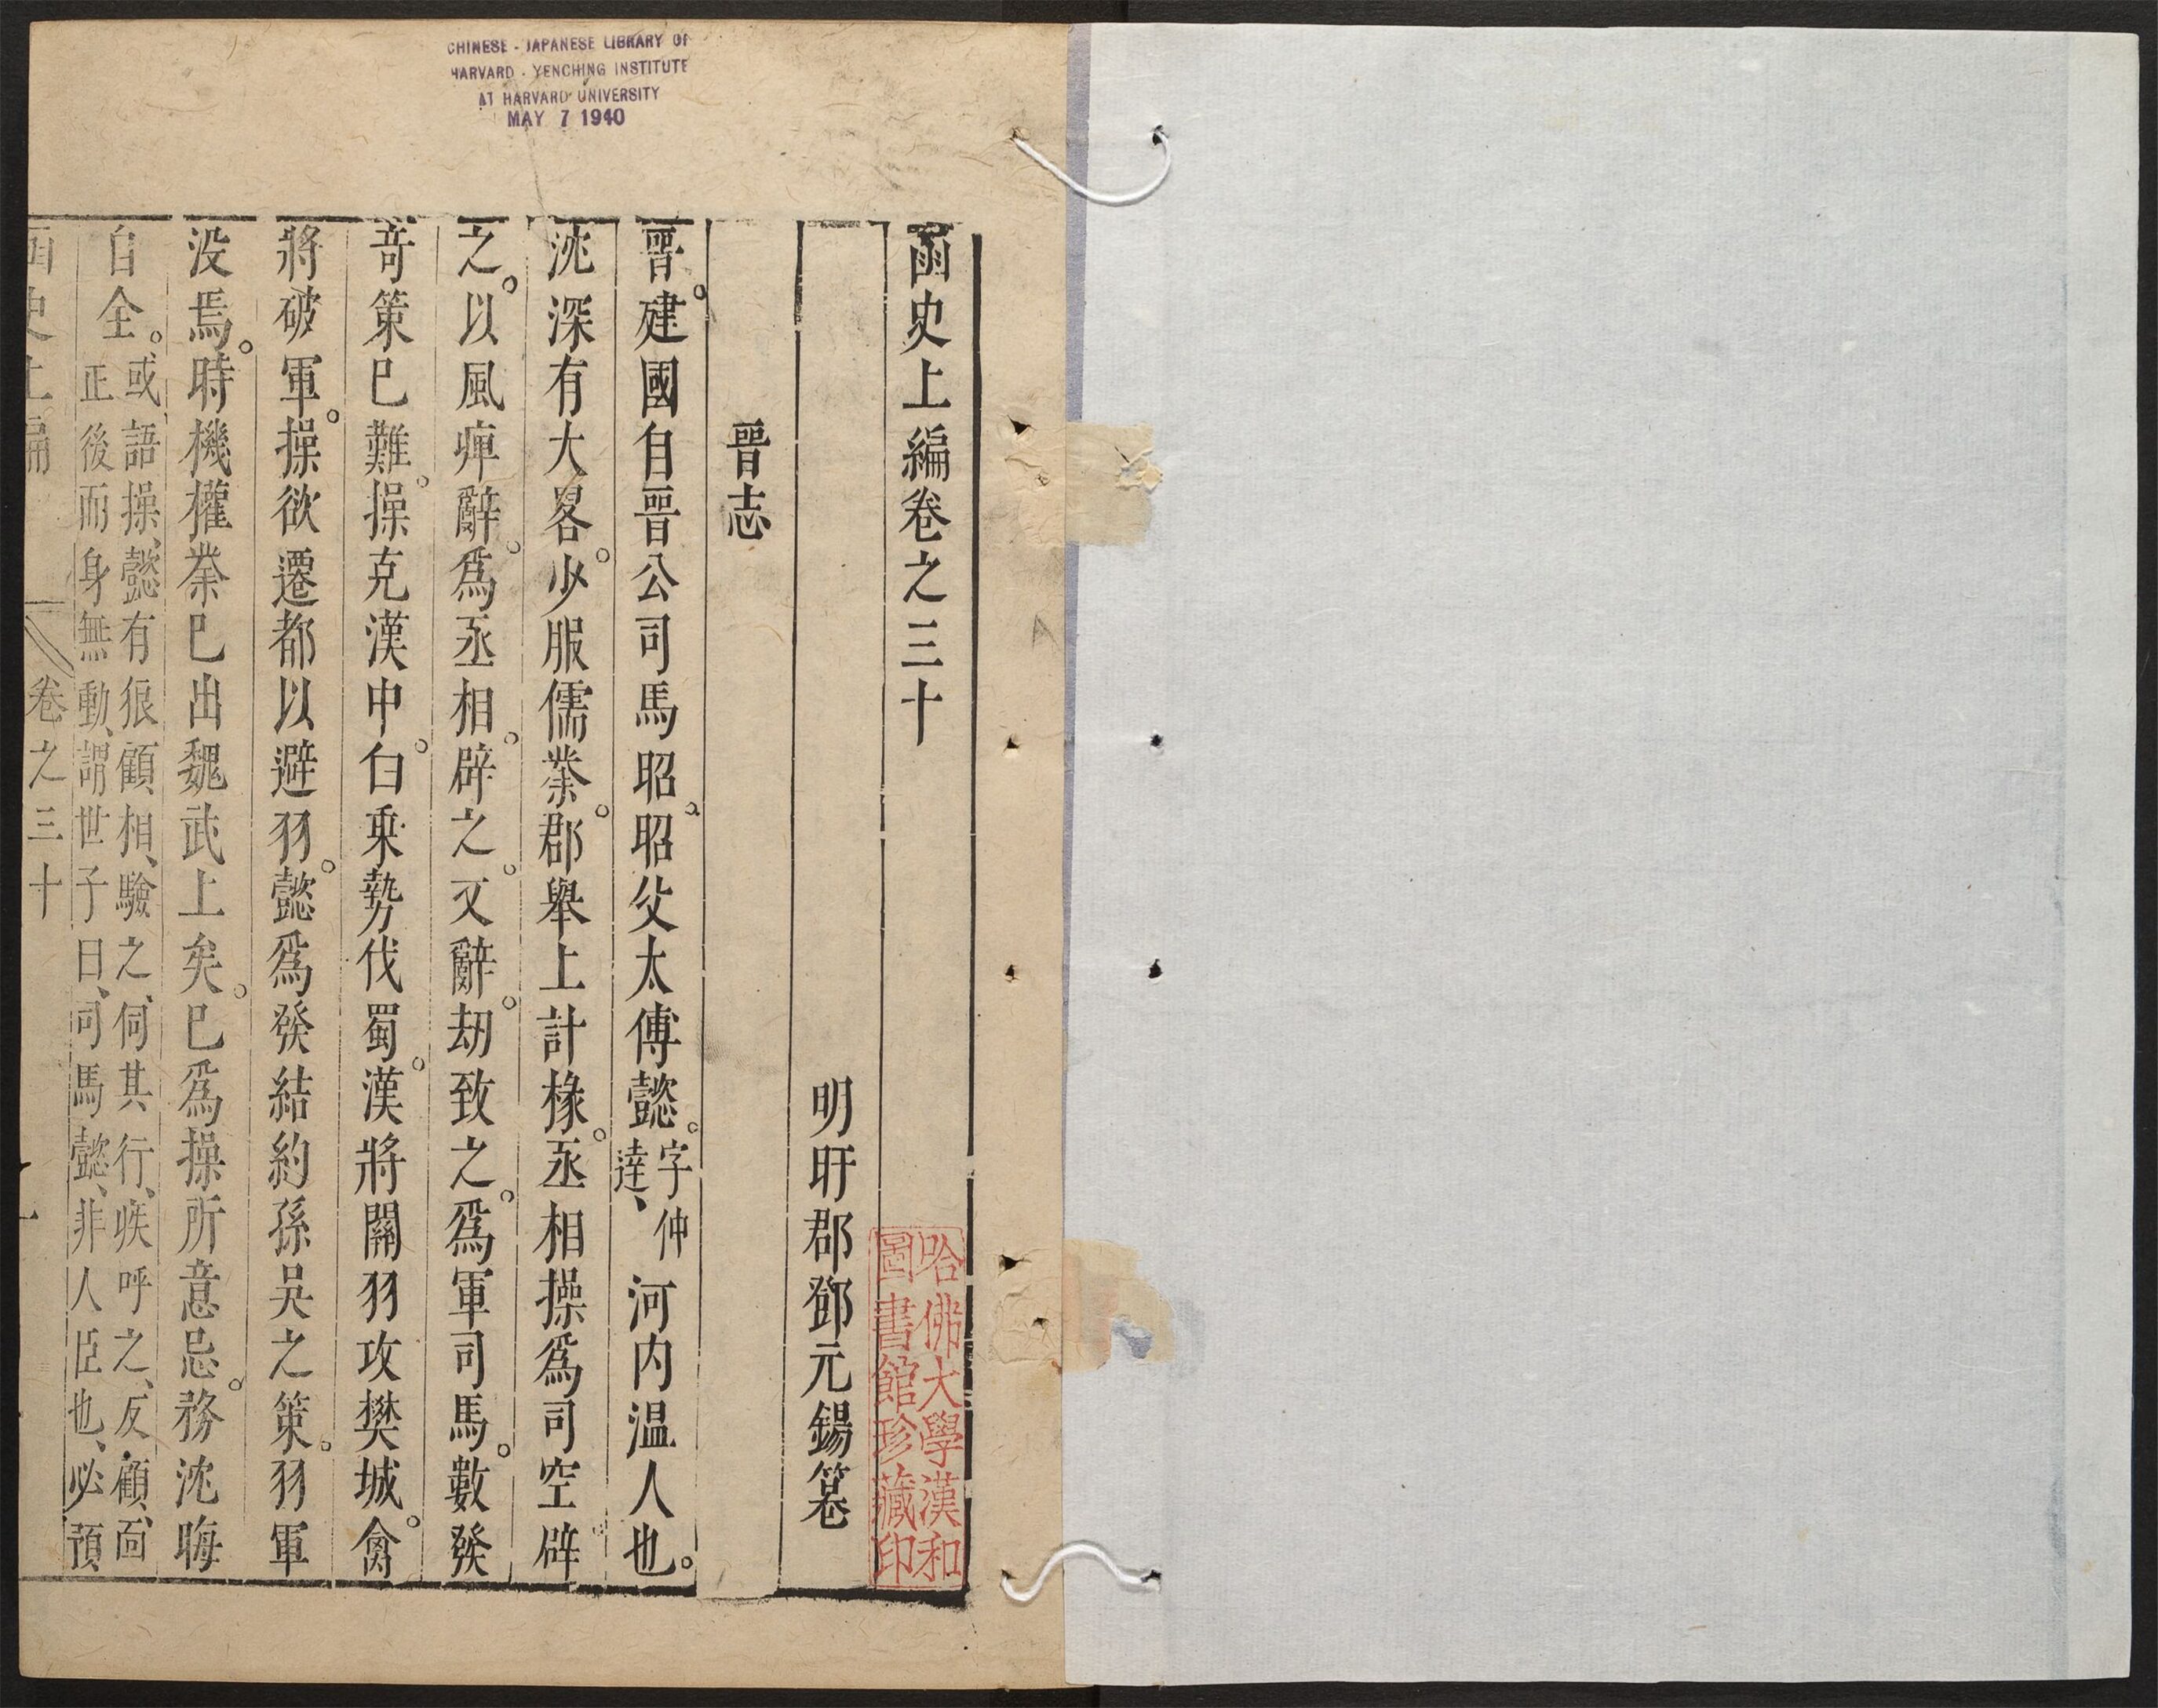 CHINESE - JAPANESE LIBRARY OF
HARVARD - YENCHING INSTITUTE
AT HARVARD UNIVERSITY
MAY 7 1940
函史上編卷之三十
明盱郡鄧元錫纂
晉志
晉。建國自晉公司馬昭。昭父太傅懿。字仲達、河内温人也。
沈深有大畧。少服儒業。郡舉上計掾。丞相操爲司空辟
之。以風痺辭。爲丞相。辟之。又辭。刼致之。爲軍司馬。數發
竒策已難。操克漢中。白乗勢伐蜀。漢將關羽攻樊城。禽
將破軍。操欲遷都以避羽。懿爲發結約孫吴之策。羽軍
没焉。時機權業已出魏武上矣。已爲操所意忌。務沈晦
自全。或語操、懿有狠顧相、驗之、伺其行、疾呼之、反顧、面正後而身無動、謂世子曰、司馬懿、非人臣也、必預
函史上編 卷之三十 一
哈佛大學漢和
圖書館珍藏印